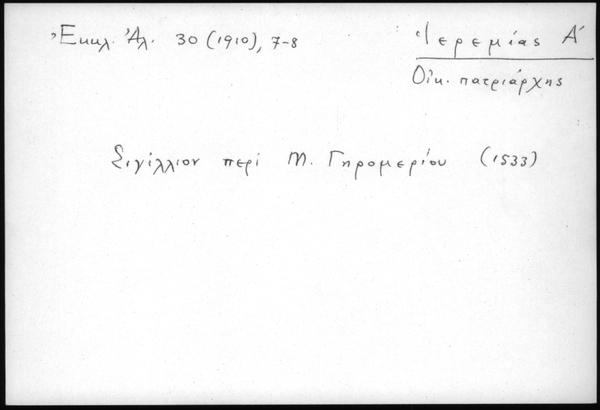 Ἐκκλ. Ἀλ. 30 (1910), 7-8
Ἱερεμίας Α΄
Οἰκ. πατριάρχης
Σιγίλλιον περί Μ. Γηρομερίου (1533)